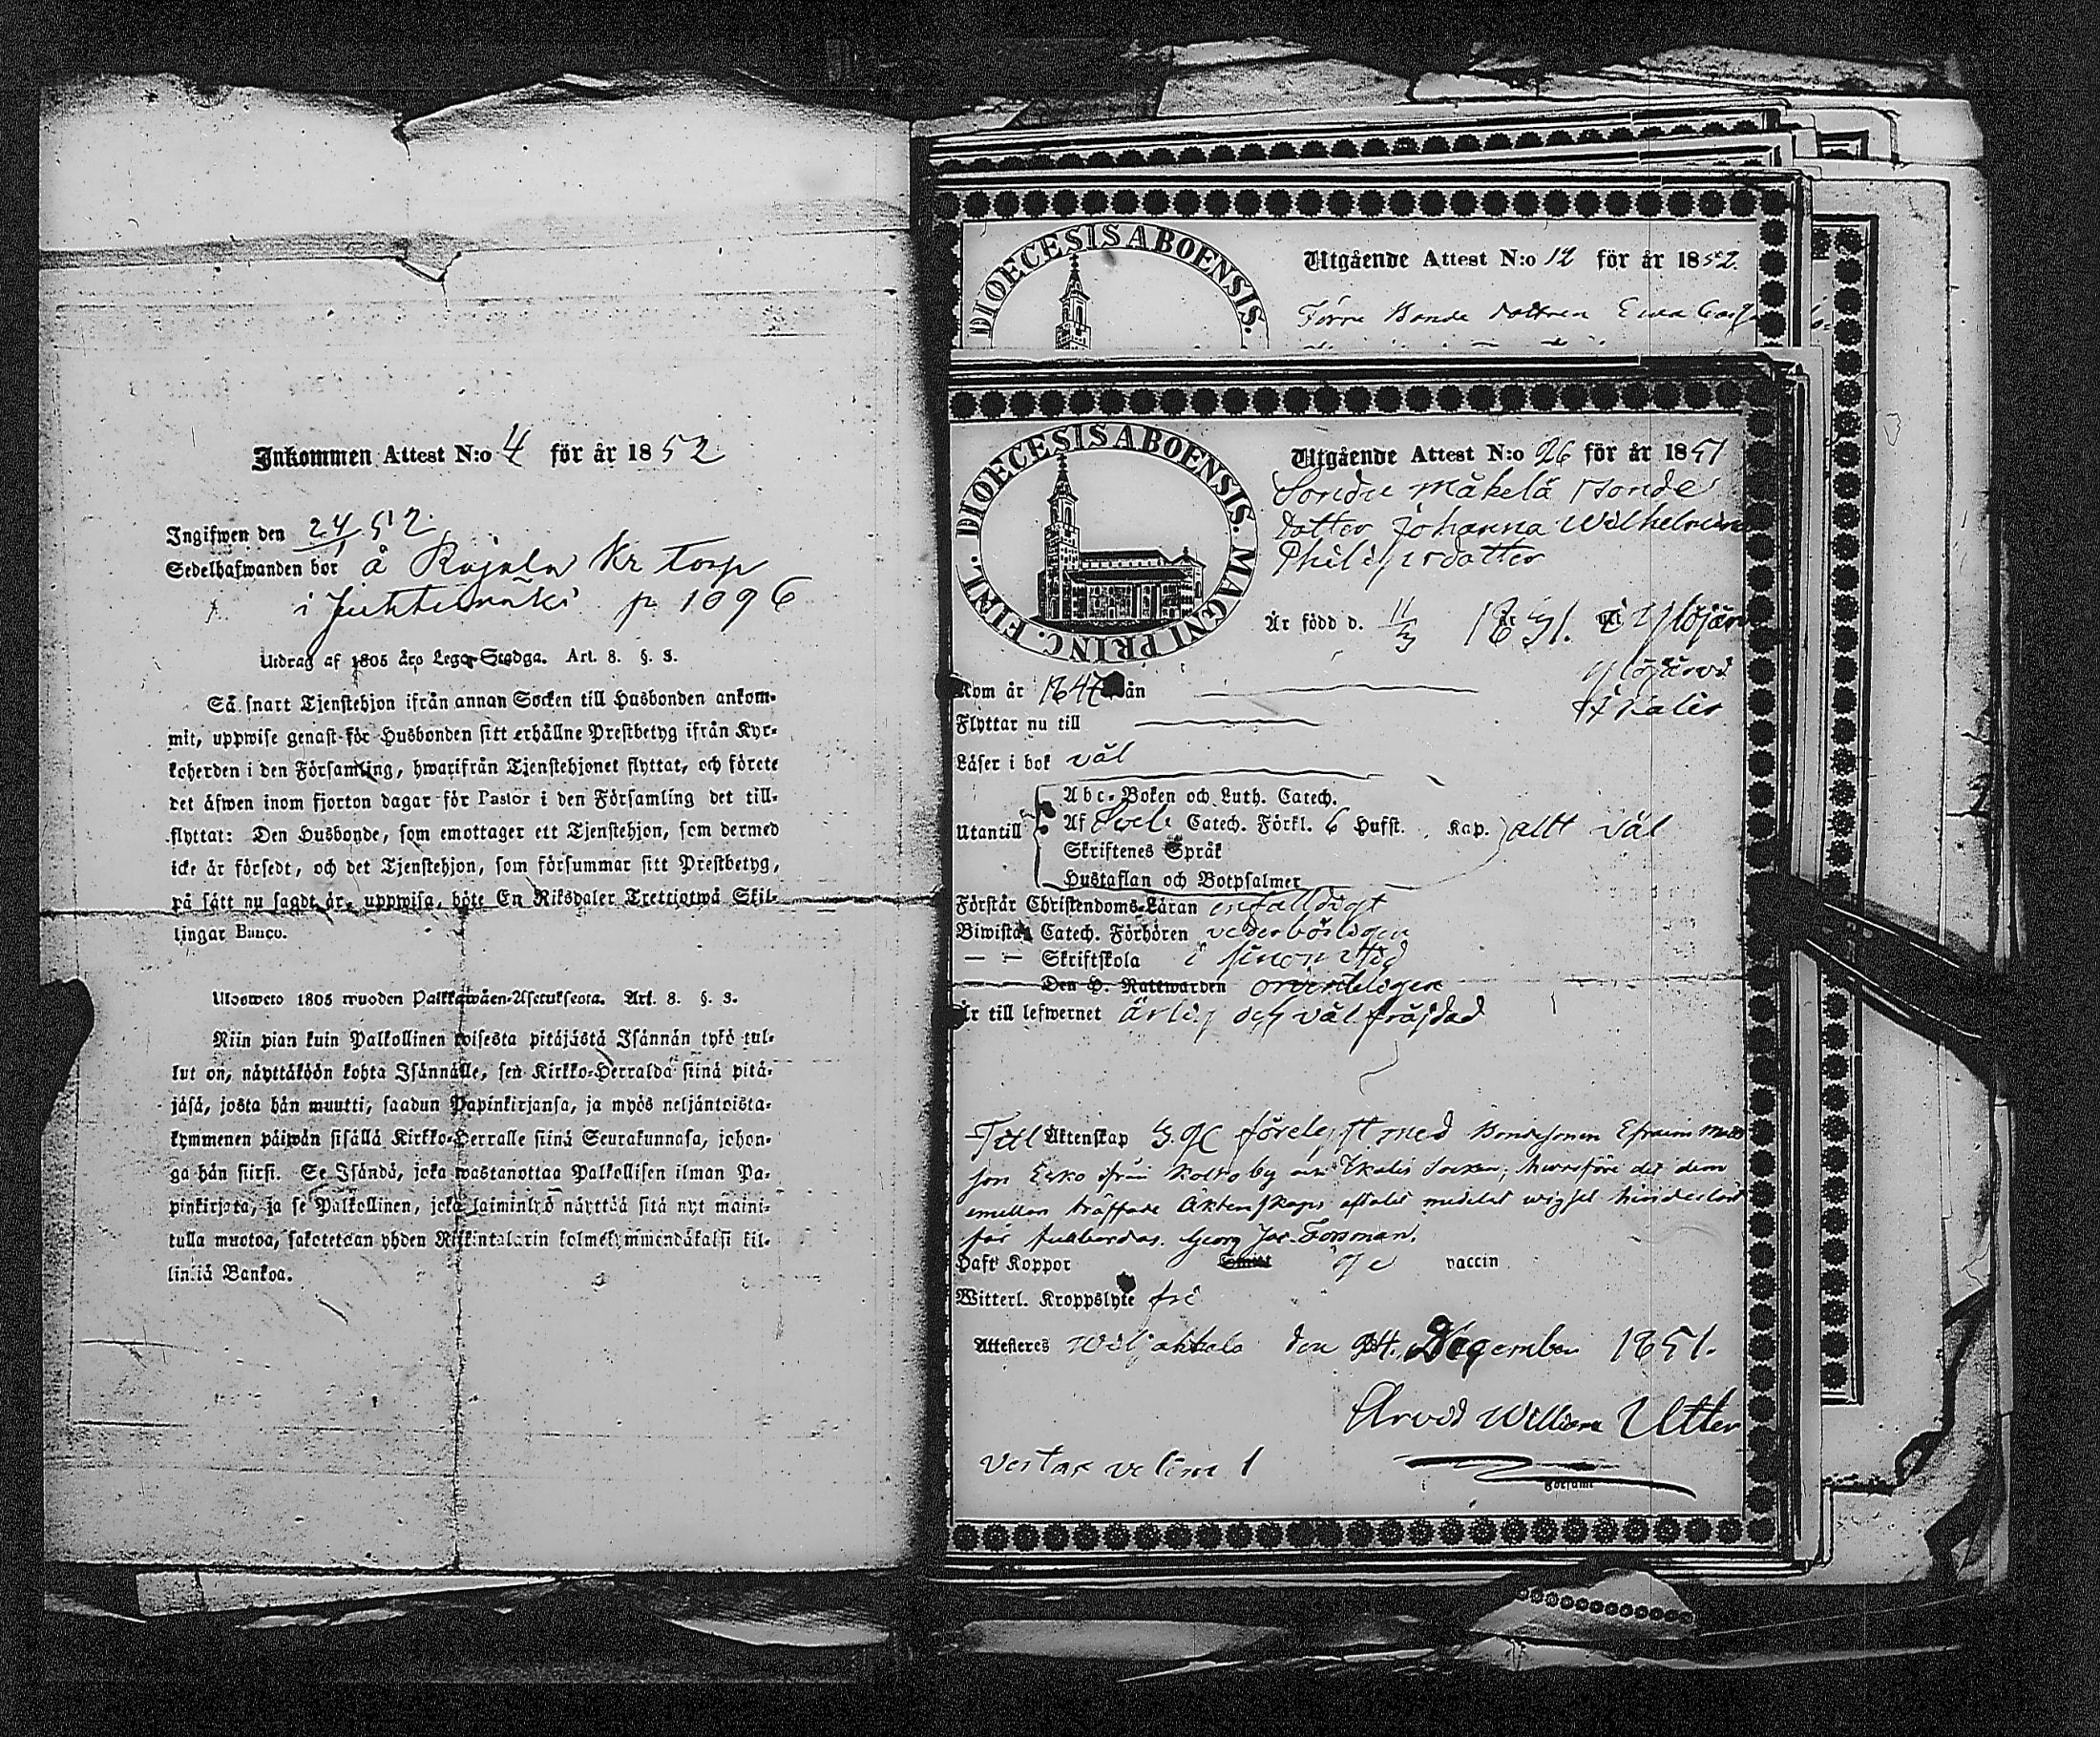 Inkommen Attest N:o 4 för år 1852
Ingifwen den 24/1 52.
Sedelhafwanden bor å Rajala Kr torp
i Juhtimäki p. 1096
Utdrag af 1805 års Lego-Stadga. Art. 8. §. 3.
Så snart Tjenstehjon ifrån annan Socken till Husbonden ankom-
mit, uppwise genast för Husbonden sitt erhållne Prestbetyg ifrån Kyr-
koherden i den Församling, hwarifrån Tjenstehjonet flyttat, och förete
det äfwen inom fjorton dagar för Pastor i den Församling det till-
flyttat: Den Husbonde, som emottager ett Tjenstehjon, som dermed
icke är försedt, och det Tjenstehjon, som försummar sitt Prestbetyg,
på sätt nu sagdt är, uppwisa, böte En Riksdaler Trettiotwå Skil-
lingar Banco.
Ulosweto 1805 wuoden Palkkawäen-Asetuksesta. Art. 8. §. 3.
Niin pian kuin Palkollinen toisesta pitäjästä Isännän tykö tul-
lut on, näyttäköön kohta Isännälle, sen Kirkko-Herralda siinä pitä-
jäsä, josta hän muutti, saadun Papinkirjansa, ja myös neljäntoista-
kymmenen päiwän sisällä Kirkko-Herralle siinä Seurakunnasa, johon-
ga hän siirsi. Se Isändä, joka wastanottaa Palkollisen ilman Pa-
pinkirjata, ja se Palkollinen, joka laiminlyö näyttää sitä nyt maini-
tulla muotoa, sakotetaan yhden Riikintalarin kolmekymmendäkaksi kil-
lingiä Bankoa.
DIOECESIS ABOENSIS.
Utgående Attest N:o 12 för år 1852.
Förre Bonde dottren Ewa
DIOECESIS ABOENSIS. MAGNI PRINC. FINL.
Utgående Attest N:o 26 för år 1851
Mäkelä Bonde
dotter Johanna Wilhelmina
Philipsdotter
Är född d. 11/3 1831. i Ylöjärvi
Ylöjärvi
Ikalis
Kom år 1847 från
Flyttar nu till
Läser i bok väl
Utantill
Abc-Boken och Luth. Catech.
Af Sveb. Catech. Förkl. 6 Hufst. Kap. allt väl
Skriftenes Språk
Hustaflan och Botpsalmer
Förstår Christendoms-Läran enfalldigt
Biwistat Catech. Förhören vederbörligen
— — Skriftskola i sinom tid
— — Den H. Nattwarden ordenteligen
Är till lefwernet ärlig och väl fräjdad
Till Äktenskap förelyst med Bondesonen Efraim Matts
son Esko ifrån by och Ikalis Socken; hvarföre det dem
emellan träffade Äktenskaps aftalet medelst wigsel hinderlöst
får fullbordas. Georg Jac. Forsman.
Haft Koppor vaccin
Witterl. Kroppslyte fri
Attesteres Wiljakkala den 24. December 1851.
Arvid William Utter